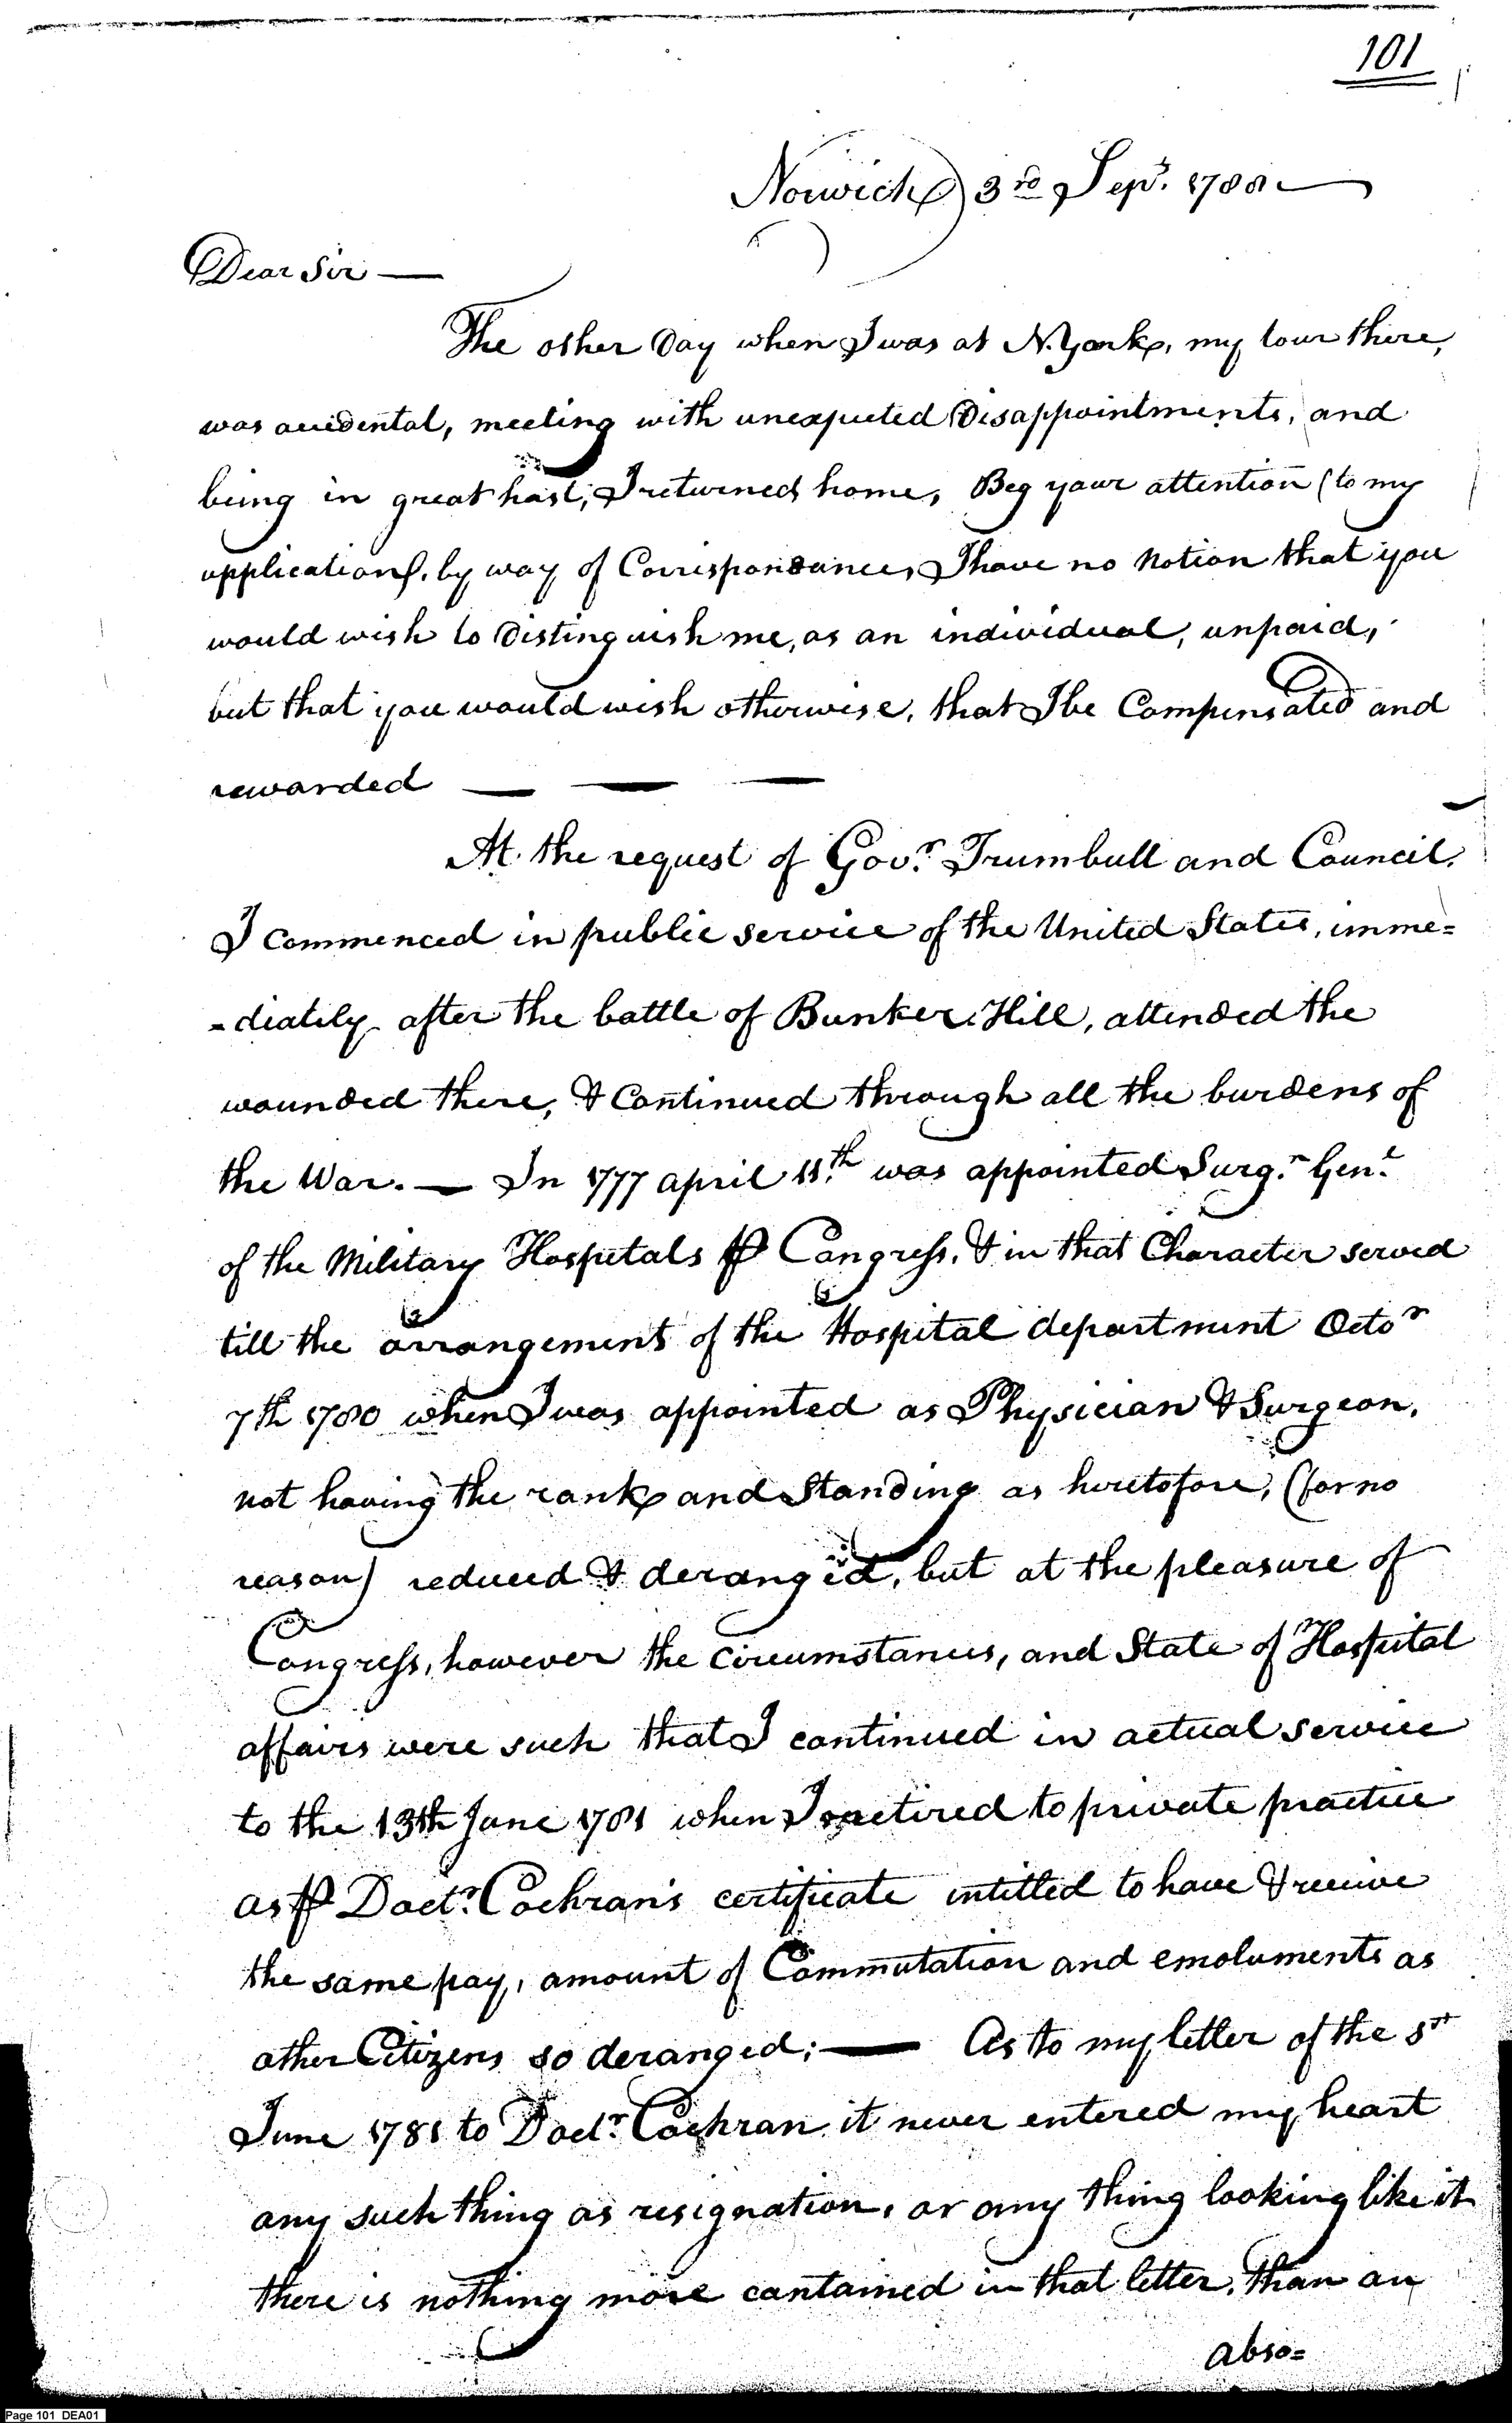 101
Norwich 3rd Sepr. 1788
Dear Sir —
The other Day when I was at N.York, my tour there,
was accidental, meeting with unexpected Disappointments, and
being in great hast, I returned home, Beg your attention (to my
application). by way of Correspondance, I have no Notion that you
would wish to Distinguish me, as an individual, unpaid,
but that you would wish otherwise, that I be Compensated and
rewarded — — —
At the request of Govr. Trumbull and Council.
I commenced in public service of the United States, imme=
=diately after the battle of Bunker Hill, attended the
wounded there, & Continued through all the burdens of
the War. — In 1777 april 11th was appointed Surgn. Genl.
of the Military Hospitals ⅌ Congress, & in that Character served
till the arrangement of the Hospital department Octor
7th 1780 when I was appointed as Physician & Surgeon,
not having the rank and Standing as heretofore, (for no
reason) reduced & deranged, but at the pleasure of
Congress, however the circumstances, and State of Hospital
affairs were such that I continued in actual service
to the 13th June 1781 when I retired to private practice
as ⅌ Doctr. Cochran's certificate intitled to have & receive
the same pay, amount of Commutation and emoluments as
other Citizens so deranged; — As to my letter of the
June 1781 to Doctr. Cochran it never entered my heart
any such thing as resignation, or any thing looking like it
there is nothing more contained in that letter, than an
abso=
Page 101 DEA01